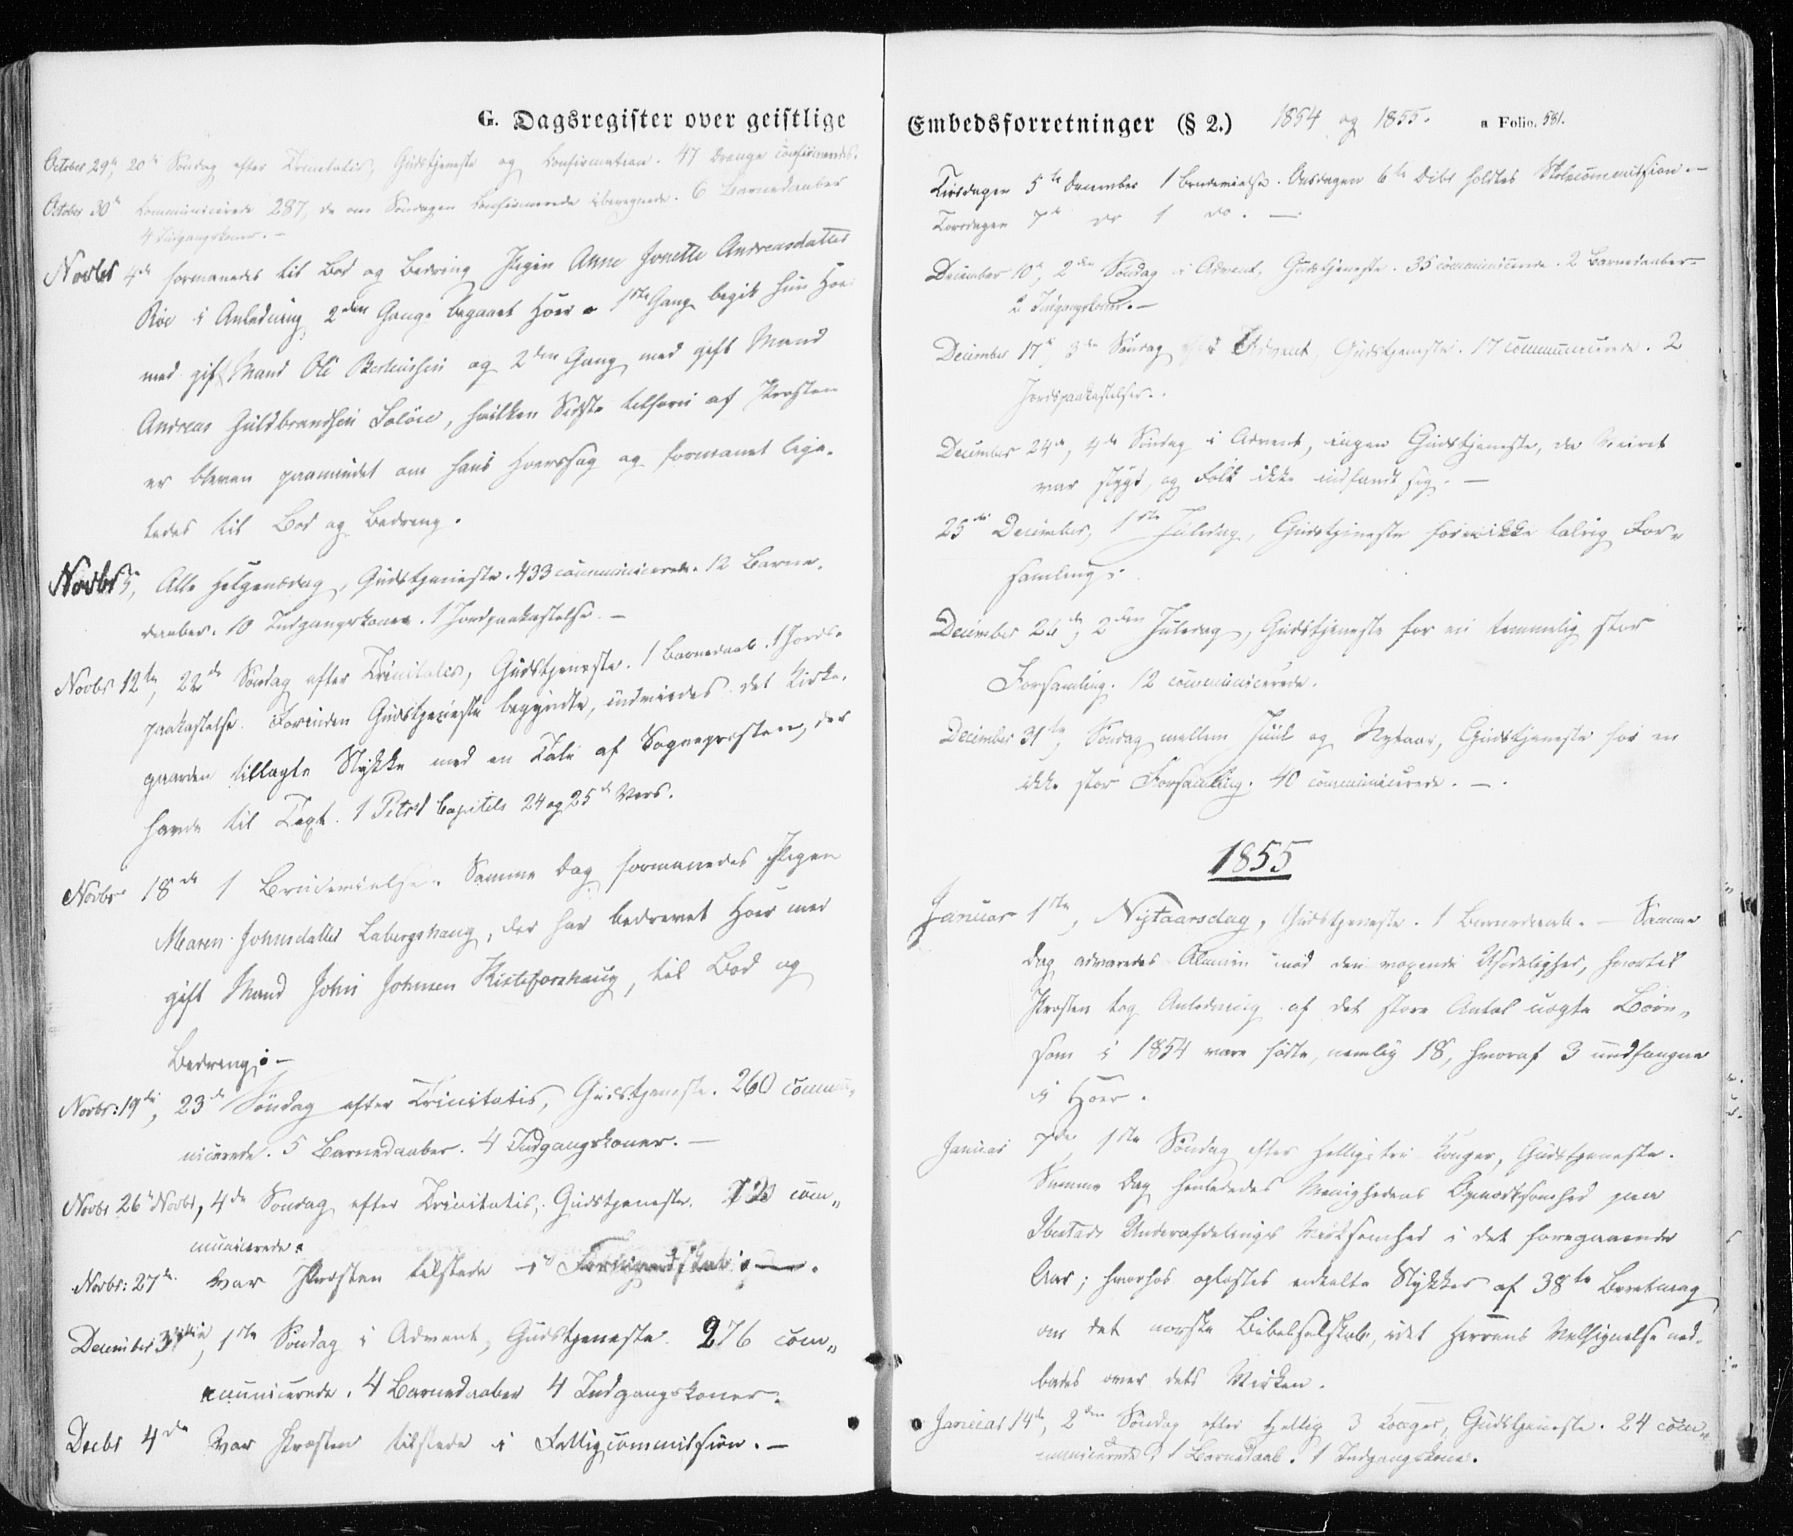 G. Dagsregister over geistlige
October 29de, 20de Søndag efter Trinitatis, Gudstjeneste og Confirmation. 47 Drenge confirmerede.
October 30te Communicerede 287, de om Søndagen Confirmerede iberegnede. 6 Barnedaaber
4 Indgangskoner. –
Novbr 4de formanedes til Bod og Bedring Pigen Anne Jonette Andreasdatter
i Anledning 2den Gang begaaet Hoer. 1ste Gang begik hun Hoer
med gift Mand Ole Berteussen og 2den Gang med gift Mand
Andreas Guldbrandsen , hvilken Sidste tilforn af Præsten
er bleven paamindet om hans Hoerssag og formanet lige-
ledes til Bod og Bedring.
Novbr 5te, Alle Helgensdag, Gudstjeneste. 433 communicerede. 12 Barne-
daaber. 10 Indgangskoner. 1 Jordpaakastelse. –
Novbr 12te, 22de Søndag efter Trinitatis, Gudstjeneste. 1 Barnedaab. 1 Jords-
paakastelse. Forinden Gudstjeneste begyndte, indviedes det Kirke-
gaarden tillagte Stykke med en Tale af Sognepræsten, der
havde til Text 1 Petri Capitels 24 og 25de Vers.
Novbr 18de 1 Brudevielse. Samme Dag formanedes Pigen
Maren Johnsdatter Labergshaug, der har bedrevet Hoer med
gift Mand John Johnsen , til Bod og
Bedring. –
Novbr: 19de, 23de Søndag efter Trinitatis, Gudstjeneste. 260 commu-
nicerede. 5 Barnedaaber. 4 Indgangskoner. –
Novbr 26de Novbr, 4de Søndag efter Trinitatis, Gudstjeneste. com-
municerede.
Novbr: 27de var Præsten tilstede i Formandskab. –
December 3die, 1ste Søndag i Advent, Gudstjeneste. 276 com-
municerede. 4 Barnedaaber 4 Indgangskoner.
Decbr 4de var Præsten tilstede i Fattigcommission. –
Embedsforretninger (§ 2.) 1854 og 1855. a Folio. 581.
Tirsdagen 5te December 1 Brudevielse. Onsdagen 6te Dito holdtes Skolecommission. –
Torsdagen 7de do 1 do. –
December 10de, 2den Søndag i Advent, Gudstjeneste. 35 communicerede. 2 Barnedaaber –
2 Indgangskoner. –
December 17de 3die Søndag i Advent, Gudstjeneste. 17 communicerede. 2
Jordspaakastelser.
December 24de, 4de Søndag i Advent, ingen Gudstjeneste, da Veiret
var stygt, og Folk ikke indfandt sig. –
25de December, 1ste Juledag, Gudstjeneste for en ikke talrig For-
samling.
December 26de, 2den Juledag, Gudstjeneste for en temmelig stor
Forsamling. 12 communicerede.
December 31te, Søndag mellem Juul og Nytaar, Gudstjeneste for en
ikke stor Forsamling. 40 communicerede. –
1855
Januar 1ste, Nytaarsdag, Gudstjeneste. 1 Barnedaab. – Samme
Dag advaredes Almuen mod den voxende Usædelighed, hvortil
Præsten tog Anledning af det store Antal uægte Børn,
som i 1854 vare fødte, nemlig 18, hvoraf 3 undfangne
i Hoer.
Januar 7de 1ste Søndag efter Hellig tre Konger, Gudstjeneste.
Samme Dag henlededes Menighedens Opmærksomhed paa
Ibestads Underafdelings Virksomhed i det foregaaende
Aar; hvorhos oplæstes enkelte Stykker af 38te Beretning
om det norske Bibelselskab, idet Herrens Velsignelse ned-
bades over dets Virken.
Januar 14de, 2den Søndag efter Hellig 3 Konger, Gudstjeneste. 24 com-
municerede, 1 Barnedaab. 1 Indgangskone.